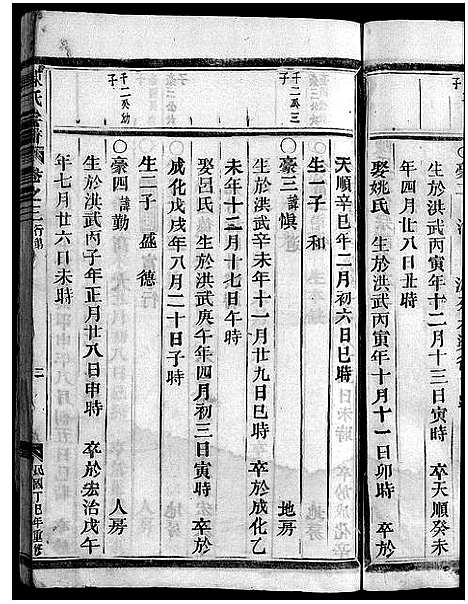 生於洪武丙寅年十二月十三日寅時　卒天順癸未
年四月廿八日丑時
娶姚氏　生於洪武丙寅年十月十一日卯時　卒於
天順辛巳年二月初六日巳時
生一子　和
千二公三子
○豪三　諱慎　地房
生於洪武辛未年十一月廿九日巳時　卒於成化乙
未年十二月十七日午時
娶呂氏　生於洪武庚午年四月初三日寅時　卒於
成化戊戌年八月二十日子時
生二子　盛　德
千二公幼子
○豪四　諱勤　人房
生於洪武丙子年正月廿八日申時　卒於宏治戊午
年七月廿六日未時
卷之二　行第
民國丁巳年重修